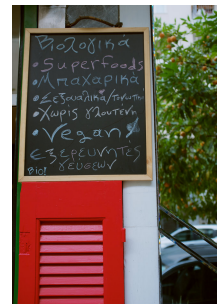 Βιολογικά
• Superfoods
• Μπαχαρικά
• Σεξουαλικά/τονωτικά
• Χωρίς γλουτένη
• Vegan
εξερευνητές
γεύσεων
Bio!